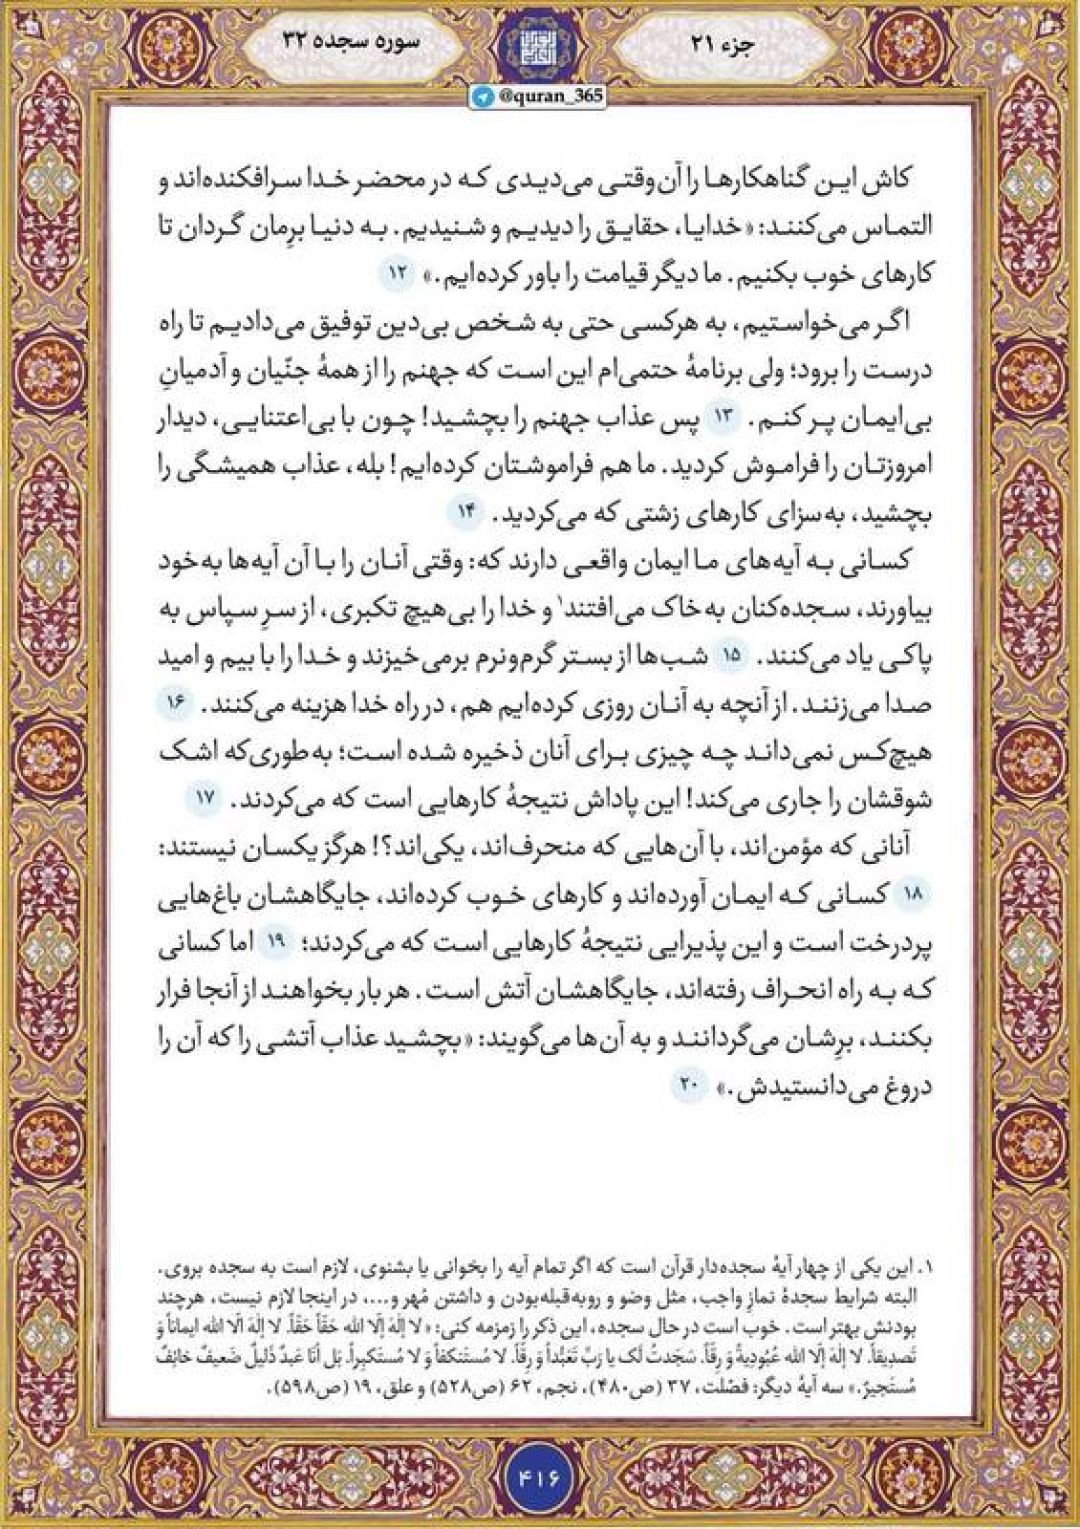 جزء ۲۱
سوره سجده ۳۲
@quran_365
کاش این گناهکارها را آن‌وقتی می‌دیدی که در محضر خدا سرافکنده‌اند و
التماس می‌کنند: «خدایا، حقایق را دیدیم و شنیدیم. به دنیا برِمان گردان تا
کارهای خوب بکنیم. ما دیگر قیامت را باور کرده‌ایم.» ۱۲
اگر می‌خواستیم، به هرکسی حتی به شخص بی‌دین توفیق می‌دادیم تا راه
درست را برود؛ ولی برنامهٔ حتمی‌ام این است که جهنم را از همهٔ جنّیان و آدمیانِ
بی‌ایمان پر کنم. ۱۳ پس عذاب جهنم را بچشید! چون با بی‌اعتنایی، دیدار
امروزتان را فراموش کردید. ما هم فراموشتان کرده‌ایم! بله، عذاب همیشگی را
بچشید، به‌سزای کارهای زشتی که می‌کردید. ۱۴
کسانی به آیه‌های ما ایمان واقعی دارند که: وقتی آنان را با آن آیه‌ها به‌خود
بیاورند، سجده‌کنان به خاک می‌افتند۱ و خدا را بی‌هیچ تکبری، از سرِ سپاس به
پاکی یاد می‌کنند. ۱۵ شب‌ها از بستر گرم‌ونرم برمی‌خیزند و خدا را با بیم و امید
صدا می‌زنند. از آنچه به آنان روزی کرده‌ایم هم، در راه خدا هزینه می‌کنند. ۱۶
هیچ‌کس نمی‌داند چه چیزی برای آنان ذخیره شده است؛ به‌طوری‌که اشک
شوقشان را جاری می‌کند! این پاداش نتیجهٔ کارهایی است که می‌کردند. ۱۷
آنانی که مؤمن‌اند، با آن‌هایی که منحرف‌اند، یکی‌اند؟! هرگز یکسان نیستند:
۱۸ کسانی که ایمان آورده‌اند و کارهای خوب کرده‌اند، جایگاهشان باغ‌هایی
پردرخت است و این پذیرایی نتیجهٔ کارهایی است که می‌کردند؛ ۱۹ اما کسانی
که به راه انحراف رفته‌اند، جایگاهشان آتش است. هر بار بخواهند از آنجا فرار
بکنند، برِشان می‌گردانند و به آن‌ها می‌گویند: «بچشید عذاب آتشی را که آن را
دروغ می‌دانستیدش.» ۲۰
۱. این یکی از چهار آیهٔ سجده‌دار قرآن است که اگر تمام آیه را بخوانی یا بشنوی، لازم است به سجده بروی.
البته شرایط سجدهٔ نماز واجب، مثل وضو و روبه‌قبله‌بودن و داشتن مُهر و...، در اینجا لازم نیست، هرچند
بودنش بهتر است. خوب است در حال سجده، این ذکر را زمزمه کنی: «لا إلهَ إلّا الله حَقّاً حَقّاً. لا إلهَ الّا الله ایماناً وَ
تَصدیقاً. لا إلهَ إلّا الله عُبُودِیةً وَ رِقّاً. سَجَدتُ لَک یا رَبِّ تَعَبُّداً وَ رِقّاً. لا مُستَنکفاً وَ لا مُستَکبِراً. بَل أنَا عَبدٌ ذَلیلٌ ضَعیفٌ خائِفٌ
مُستَجیرٌ.» سه آیهٔ دیگر: فصّلت، ۳۷ (ص۴۸۰)، نجم، ۶۲ (ص۵۲۸) و علق، ۱۹ (ص۵۹۸).
۴۱۶